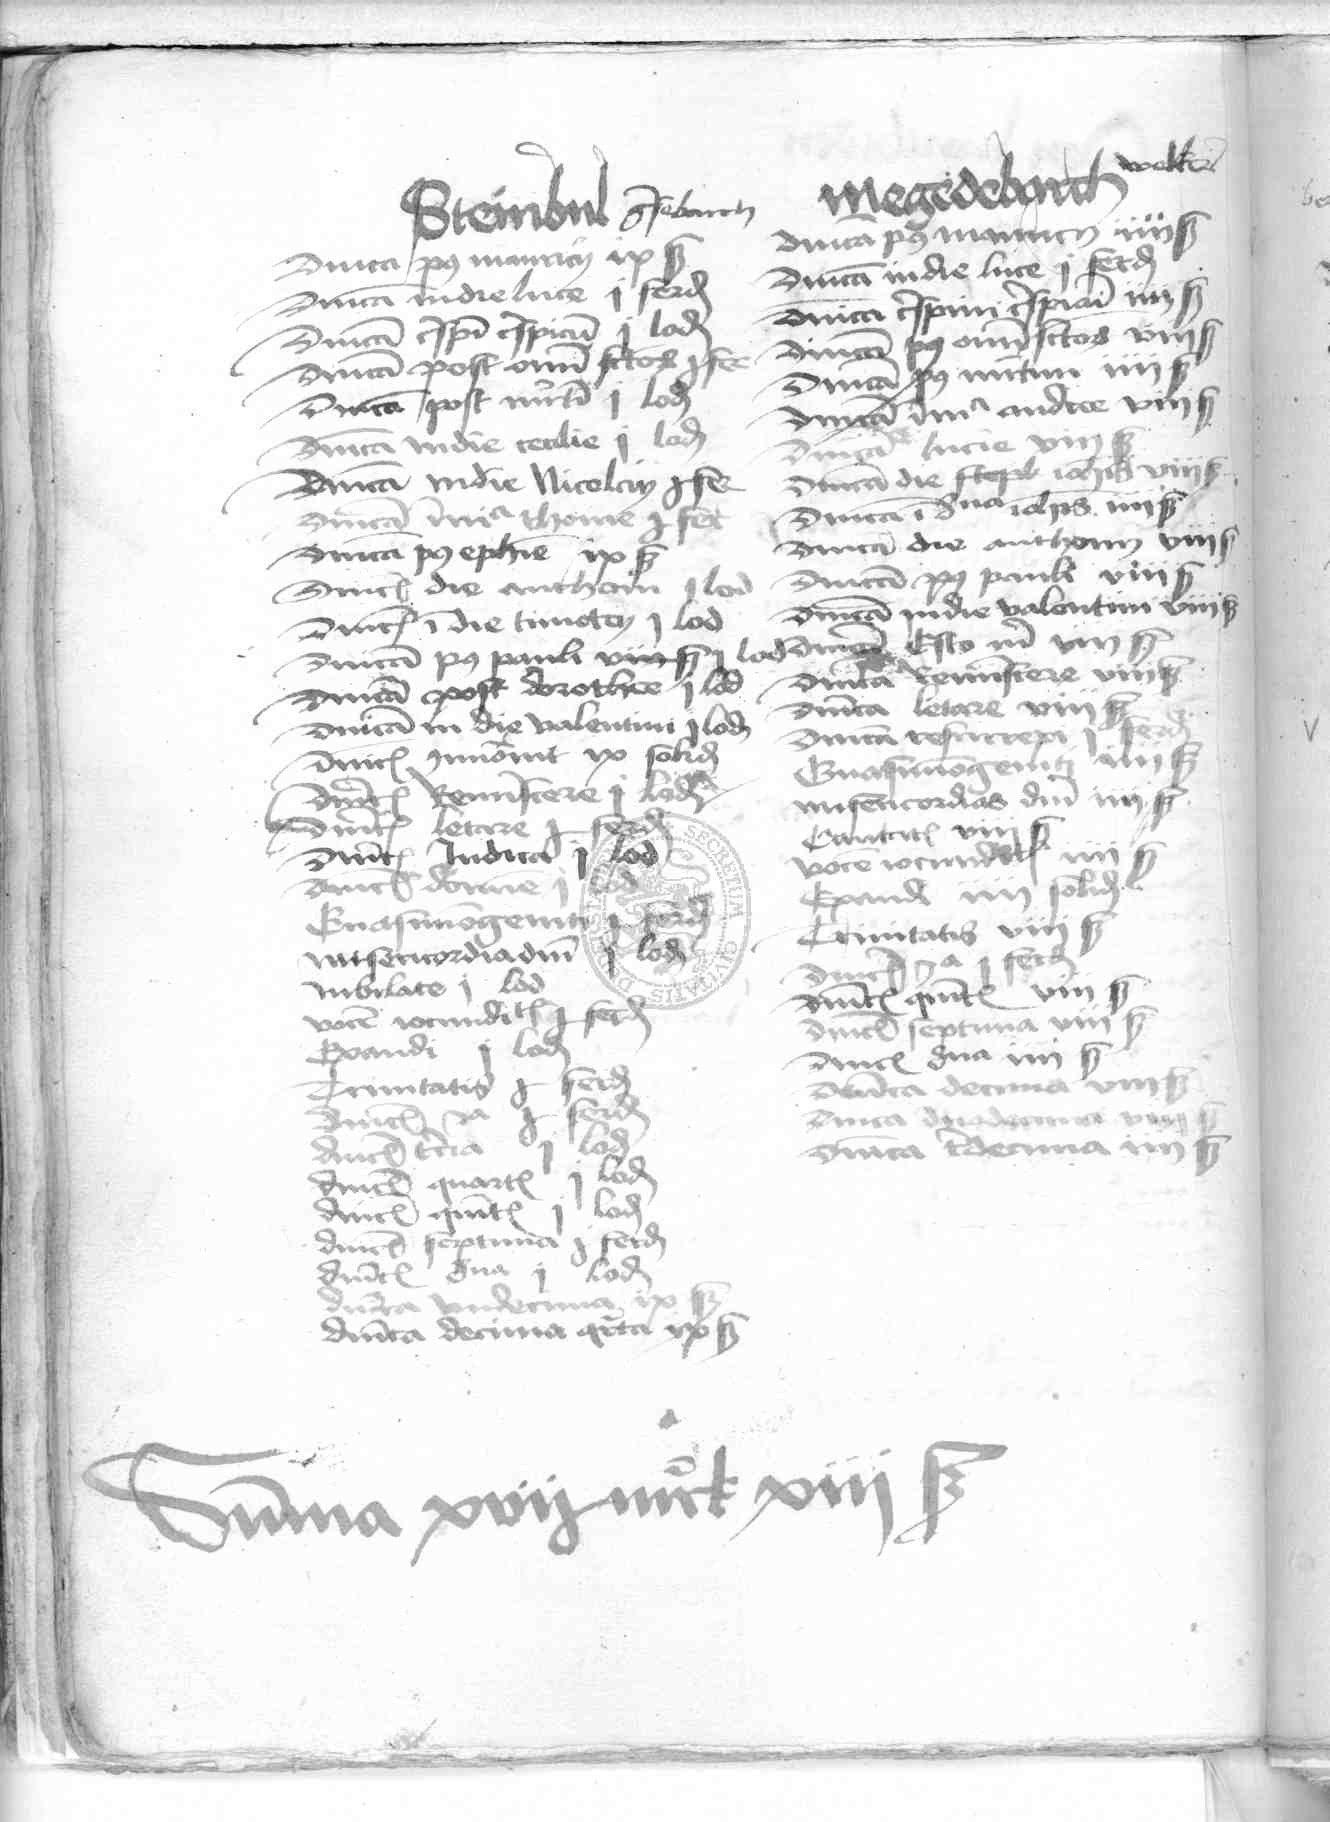 Steinbul
Dnica pꝰ mauricij ix ß
Dnica indie luce j ferd
Dnica Crispi Crispiani j lod
Dnica post omi sctos j fer
Dnica post mrti j lod
Dnica indie cecilie j lod
Dnica indie Nicolaij j fer
Dnica thome j fert
Dnica pꝰ ephie ix ß
Dnica die anthonii j lod
Dnica i die timotei j lod
Dnica pꝰ pauli viij ß j lod
Dnica post dorothee j lod
Dnica in die valentini j lod
Dnica Inuocauit ix solid
Dnica Reminiscere j lod
Dnica letare j ferd
Dnica Judica j lod
Quasimogeniti j ferd
misericordia dni j lod
iubilate j lod
voce iocunditatis j ferd
Exaudi j lod
Trinitatis j ferd
Dnica j ferd
dnica tercia j lod
dnica quarta j lod
dnica quinta j lod
dnica septima j ferd
dnica j lod
dnica undecima ix ß
dnica decima qrta ix ß
Megedebarch
Dnica pꝰ mauricij iiij ß
Dnica indie luce j ferd
Dnica Crispini Crispiani iiij ß
Dnica pꝰ omi sctos viij ß
Dnica pꝰ mrtini iiij ß
Dnica andree viij ß
Dnica lucie viij ß
Dnica die steph iohis viij ß
Dnica iohis iiij ß
Dnica die anthonij viij ß
Dnica pꝰ pauli viij ß
Dnica indie valentini viij ß
Dnica Esto mi viij ß
Dnica Reminiscere viij ß
Dnica letare viij ß
Dnica resurrexi j ferd
Quasimogeniti iiij ß
misericordias dni iiij ß
Cantate viij ß
voce iocunditatis iiij ß
Exaudi iiij solid
Trinitatis viij ß
Dnica j ferd
Dnica quinta viij ß
Dnica septima viij ß
Dnica iiij ß
Dnica decima viij ß
Dnica duodecima viij ß
Dnica iiij ß
Summa xvij mrk xiiij ß